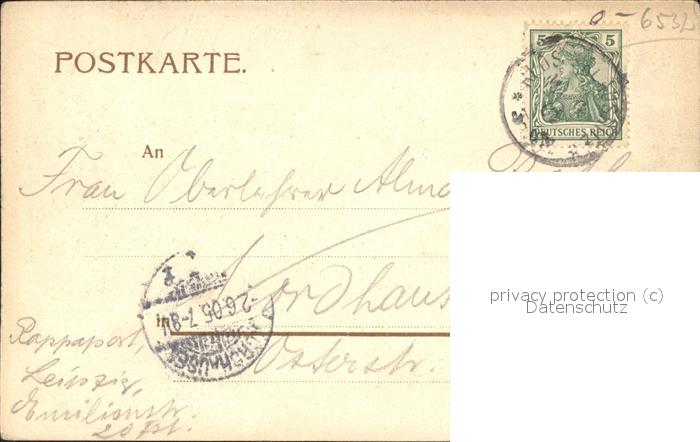 POSTKARTE.
5 5
DEUTSCHES REICH
An
Frau Oberlehrer Alma
Nordhaus
in
-2.6.05.7-8
Osterstr.
Rappaport,
Leipzig,
Emilienstr.
privacy protection (c)
Datenschutz